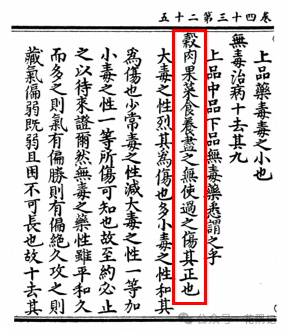 卷四十三第二十五
上品藥毒毒之小也
無毒治病十去其九
上品中品下品無毒藥悉謂之平
穀肉果菜食養盡之無使過之傷其正也
大毒之性烈其為傷也多小毒之性和其
為傷也少常毒之性減大毒之性一等加
小毒之性一等所傷可知也故至約必止
之以待來證爾然無毒之藥性雖平和久
而多之則氣有偏勝則有偏絕久攻之則
藏氣偏弱既弱且困不可長也故十去其
公众号